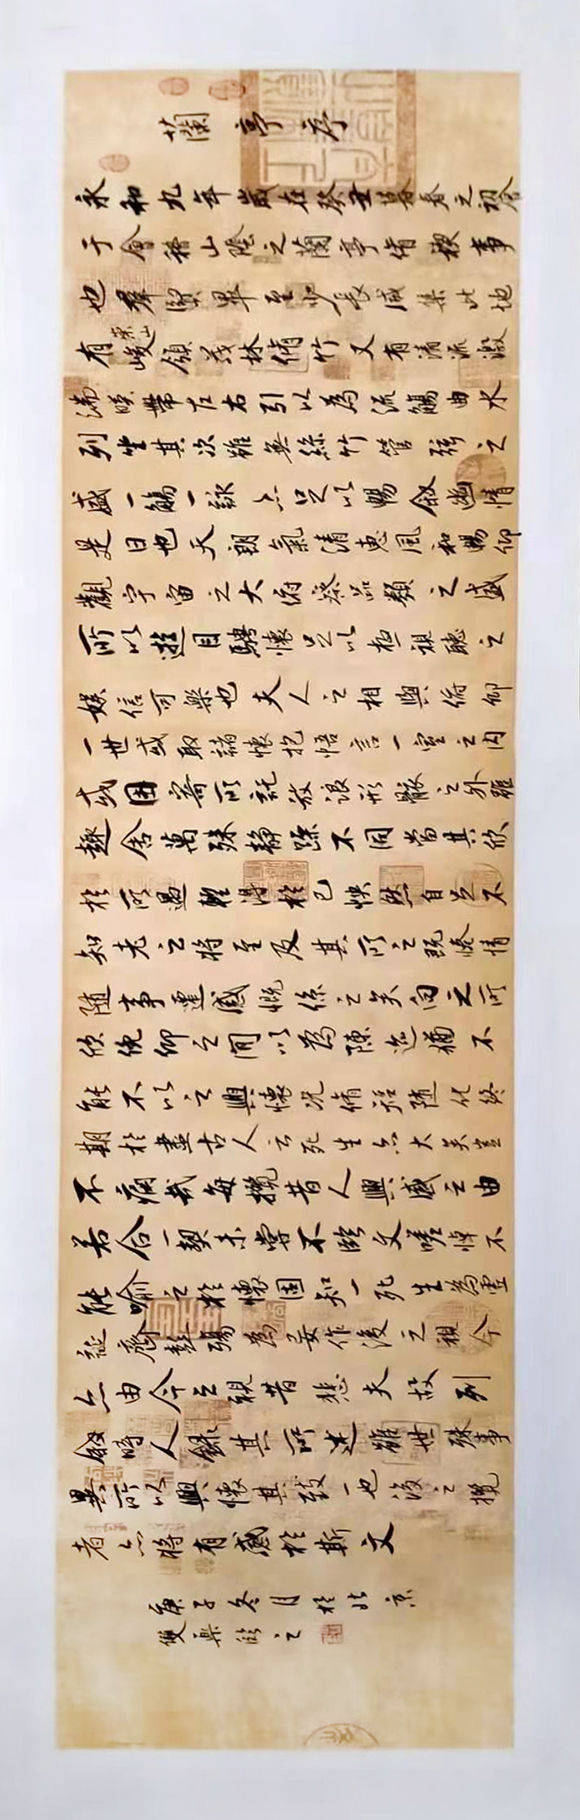 蘭亭序
永和九年歲在癸丑暮春之初會
于會稽山陰之蘭亭脩禊事
也羣賢畢至少長咸集此地
有崇山峻領茂林脩竹又有清流激
湍暎帶左右引以為流觴曲水
列坐其次雖無絲竹管弦之
盛一觴一詠亦足以暢叙幽情
是日也天朗氣清惠風和暢仰
觀宇宙之大俯察品類之盛
所以遊目騁懷足以極視聽之
娛信可樂也夫人之相與俯仰
一世或取諸懷抱悟言一室之内
或因寄所託放浪形骸之外雖
趣舍萬殊靜躁不同當其欣
於所遇暫得於己怏然自足不
知老之將至及其所之既惓情
隨事遷感慨係之矣向之所
欣俛仰之間以為陳迹猶不
能不以之興懷況脩短隨化終
期於盡古人云死生亦大矣豈
不痛哉每攬昔人興感之由
若合一契未嘗不臨文嗟悼不
能喻之於懷固知一死生為虛
誕齊彭殤為妄作後之視今
亦由今之視昔悲夫故列
叙時人錄其所述雖世殊事
異所以興懷其致一也後之攬
者亦將有感於斯文
庚子冬月於北京
雙臨之